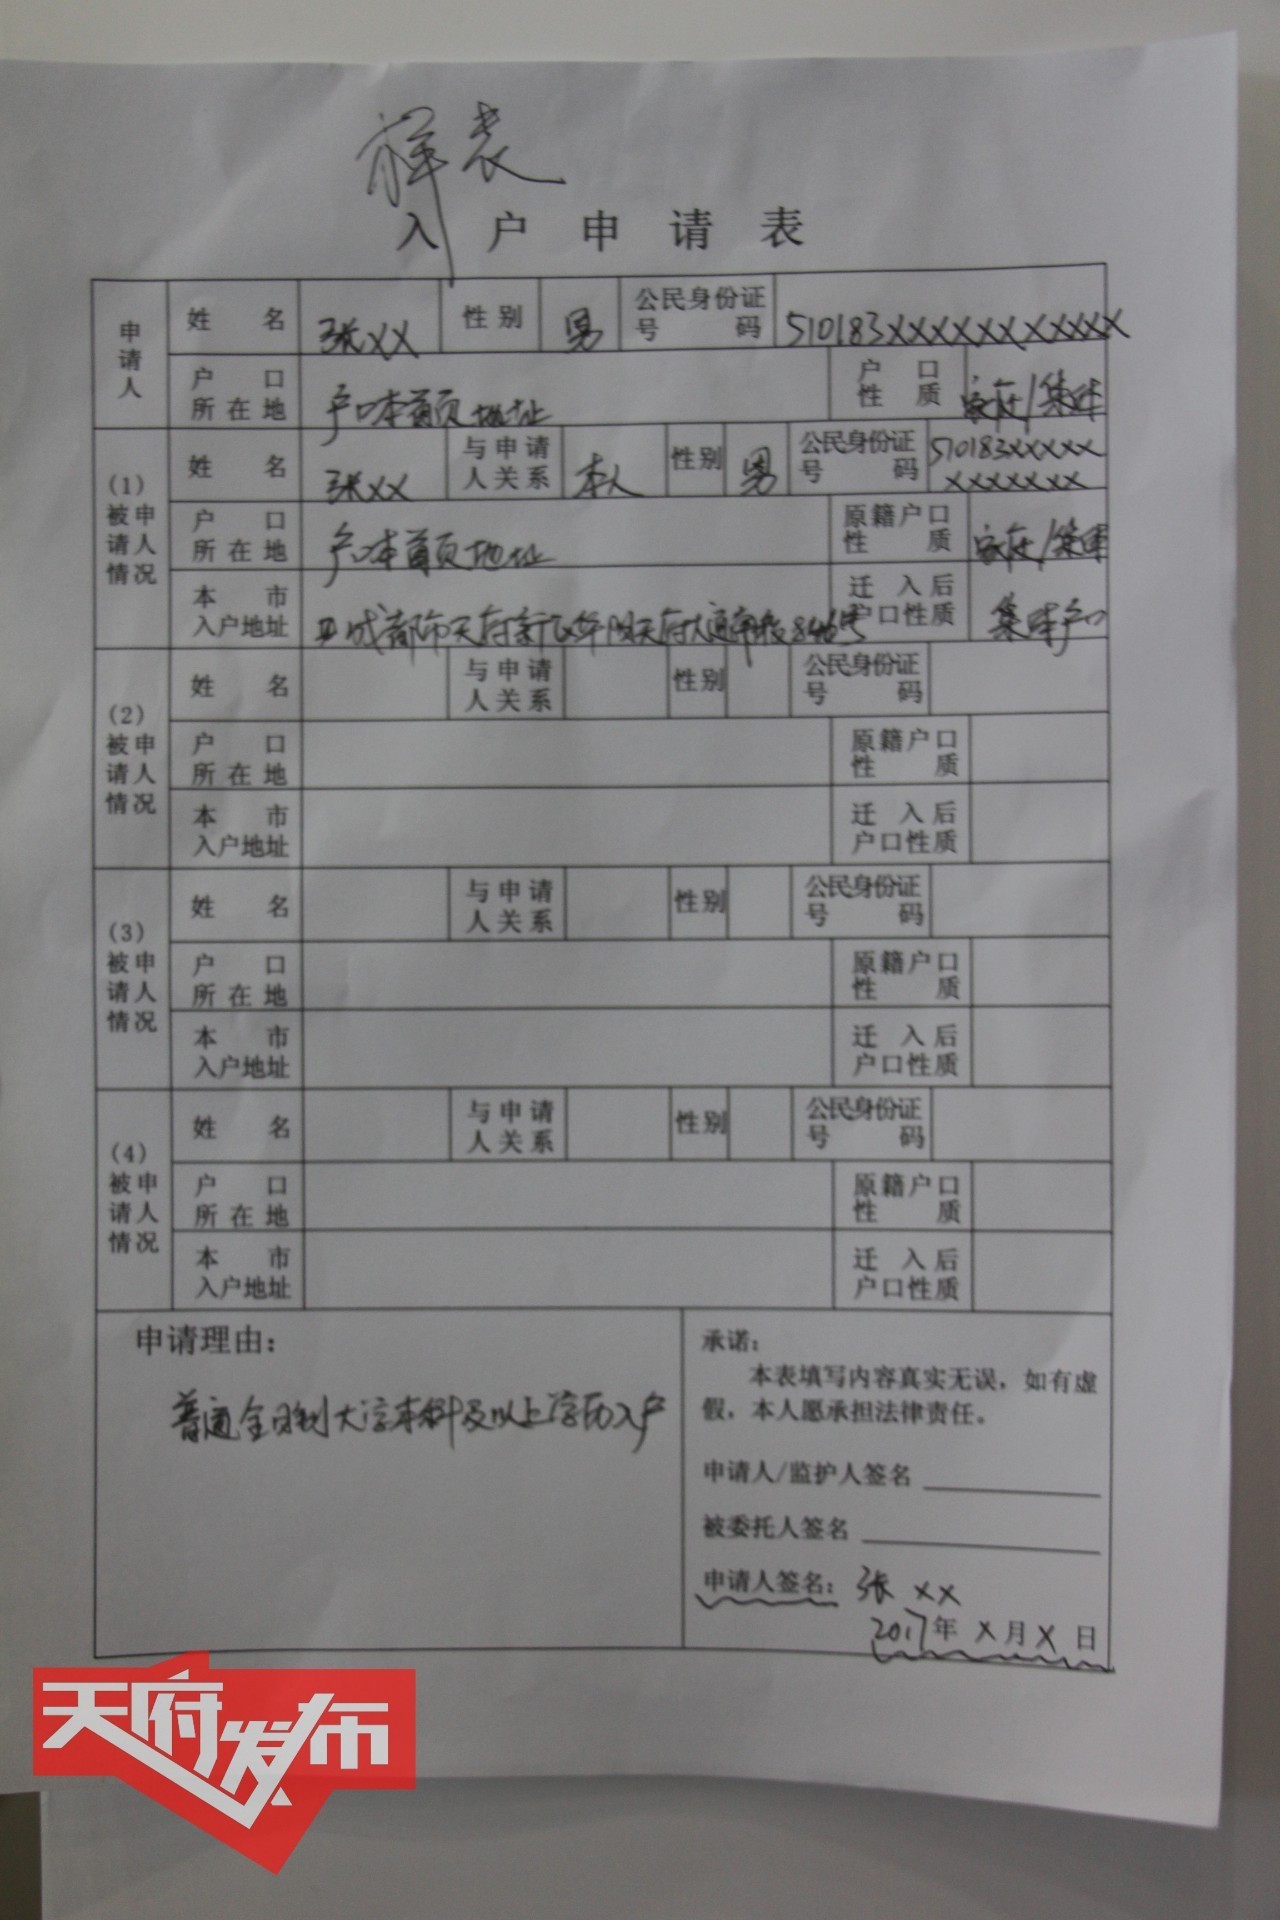 样表
入户申请表
申请人 姓名 张XX 性别 男 公民身份证号码 510183XXXXXXXXXXXX
户口所在地 户口本首页地址 户口性质 家庭/集体
(1)被申请人情况 姓名 张XX 与申请人关系 本人 性别 男 公民身份证号码 510183XXXXXXXXXXXX
户口所在地 户口本首页地址 原籍户口性质 家庭/集体
本市入户地址 成都市天府新区华阳天府大道南段846号 迁入后户口性质 集体户口
(2)被申请人情况 姓名 与申请人关系 性别 公民身份证号码
户口所在地 原籍户口性质
本市入户地址 迁入后户口性质
(3)被申请人情况 姓名 与申请人关系 性别 公民身份证号码
户口所在地 原籍户口性质
本市入户地址 迁入后户口性质
(4)被申请人情况 姓名 与申请人关系 性别 公民身份证号码
户口所在地 原籍户口性质
本市入户地址 迁入后户口性质
申请理由：
普通全日制大学本科及以上学历入户
承诺：
本表填写内容真实无误，如有虚
假，本人愿承担法律责任。
申请人/监护人签名
被委托人签名
申请人签名：张 XX
2017年 X月X 日
天府发布